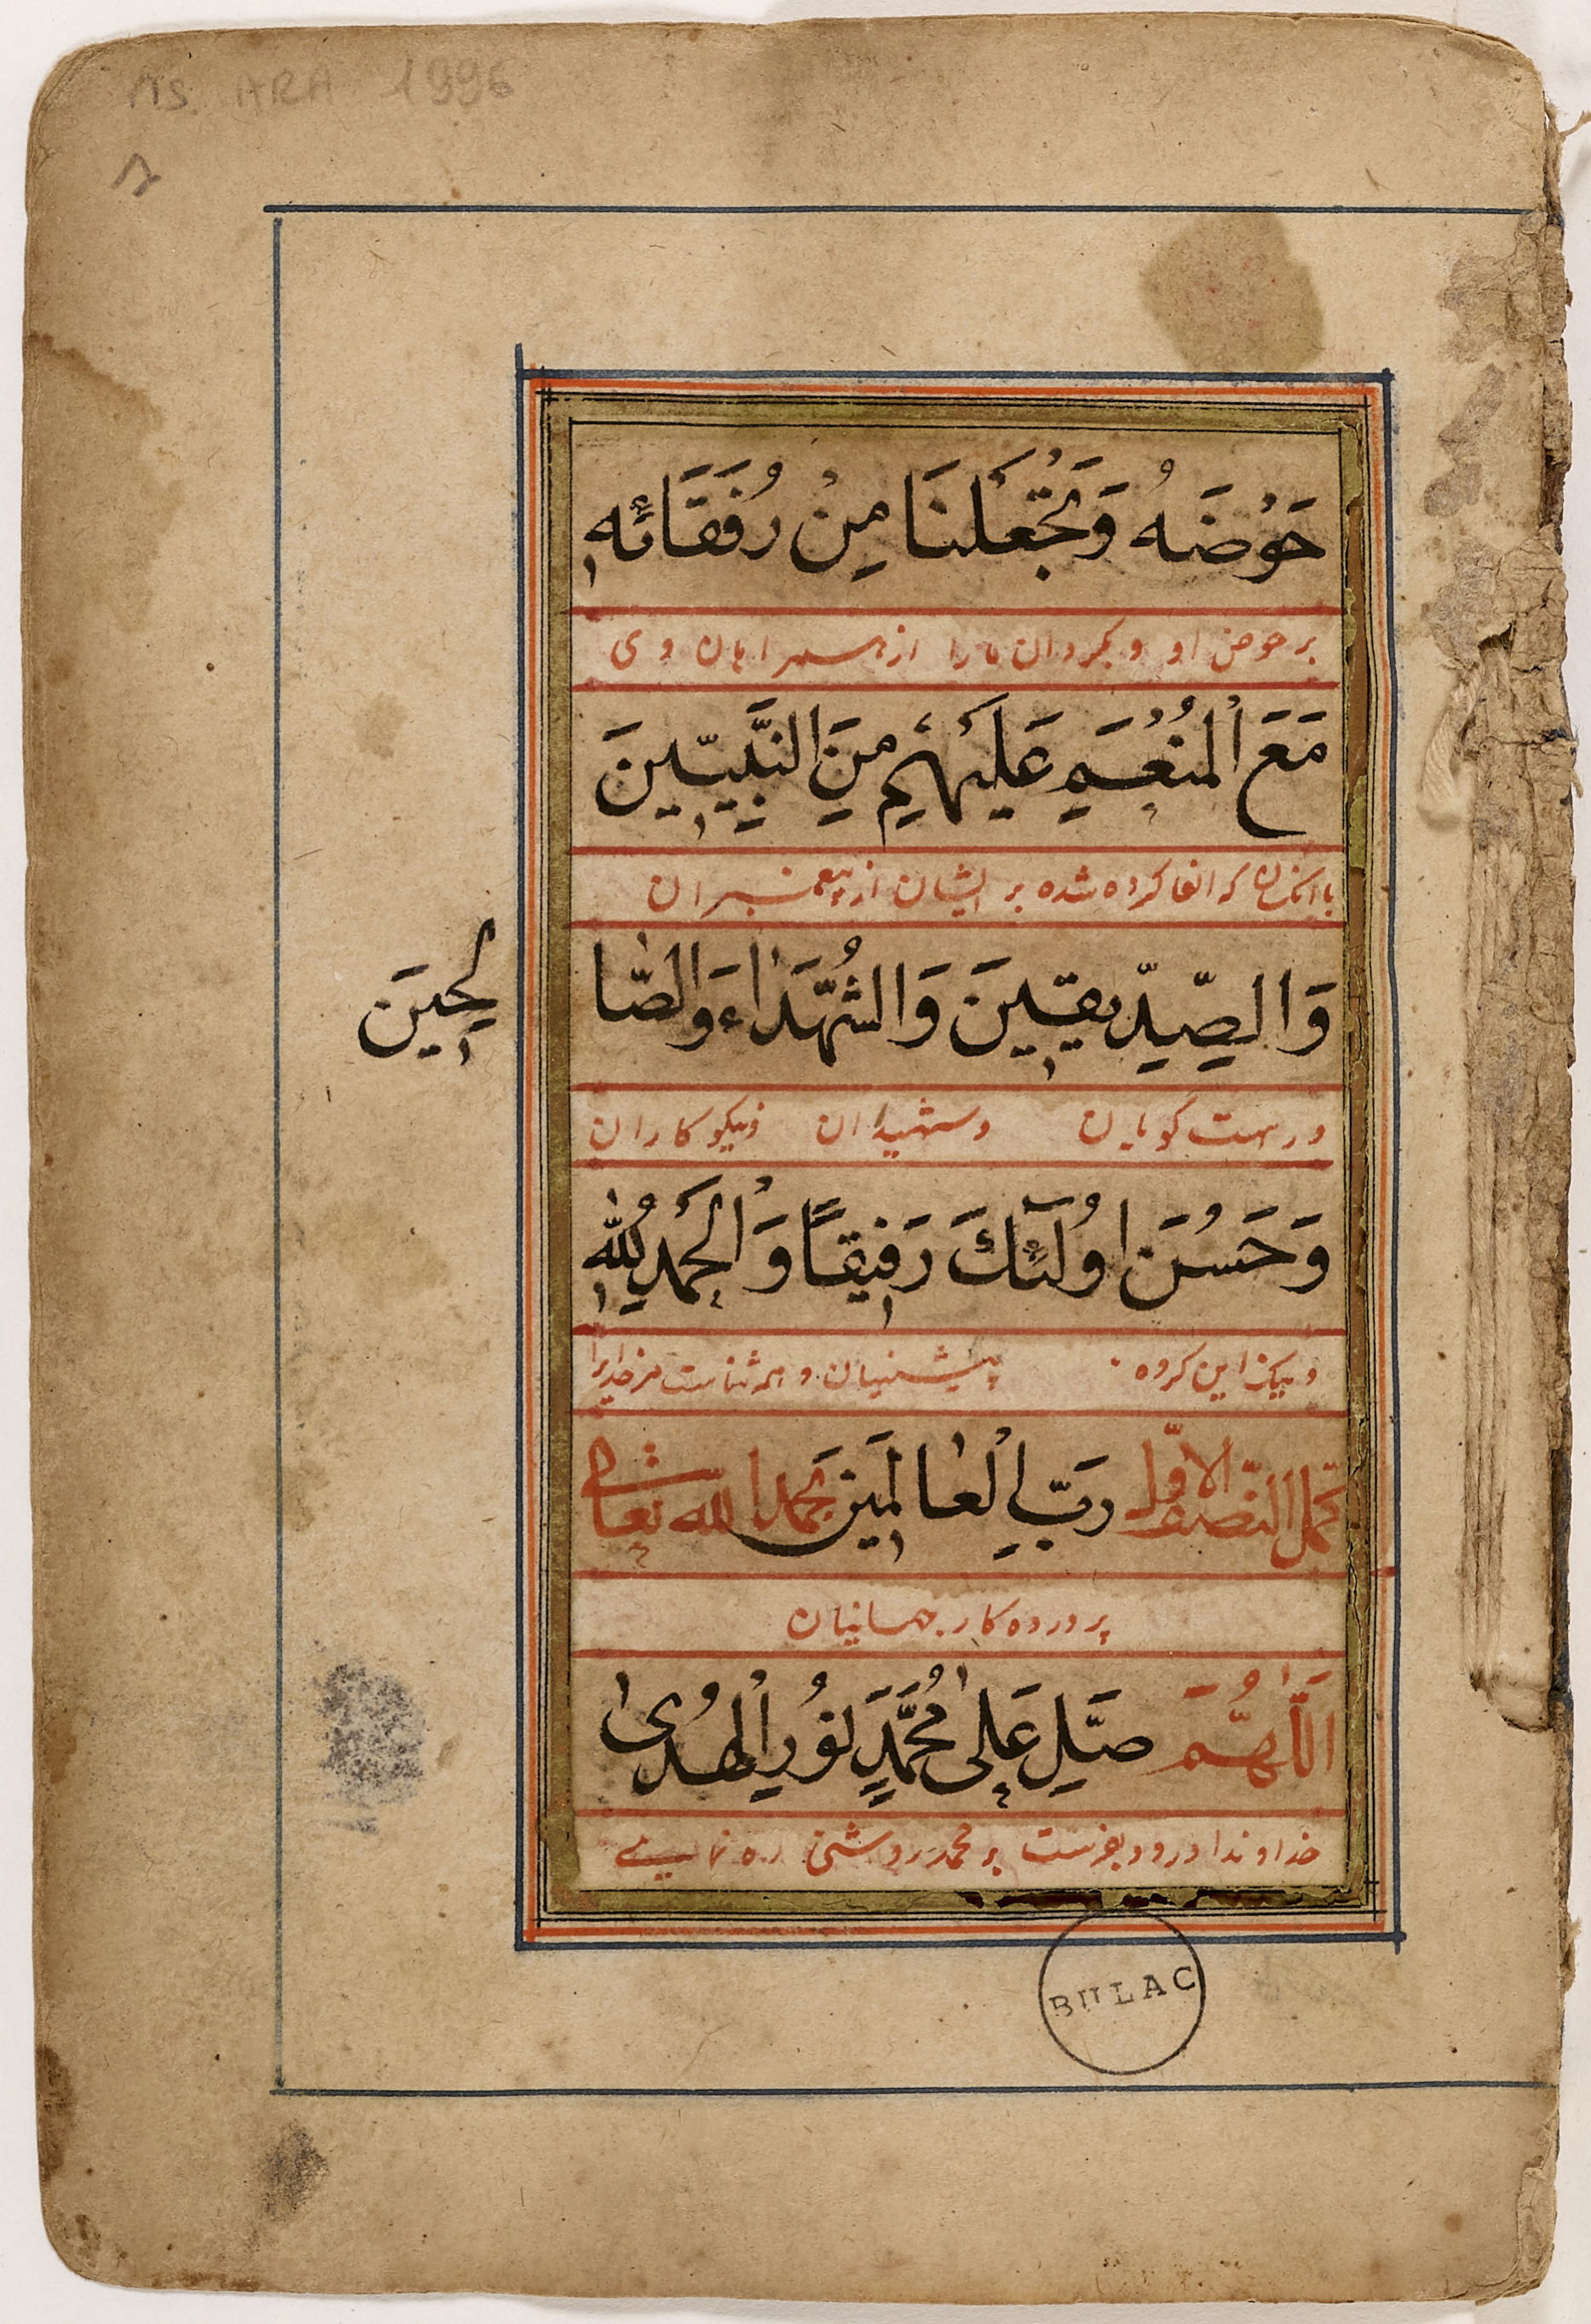 MS ARA 1996
حَوْضَهُ وَتَجْعَلَنَا مِنْ رُفَقَائِهِ
بر حوض او و بگردان ما را از همراهان وی
مَعَ الْمُنْعَمِ عَلَيْهِمْ مِنَ النَّبِيِّينَ
با آنکسان که انعام کرده شده بر ایشان از پیغمبران
وَالصِّدِّيقِينَ وَالشُّهَدَاءِ وَالصَّا
لِحِينَ
و راست گویان و شهیدان و نیکو کاران
وَحَسُنَ اُولَٓئِكَ رَفِيقًا وَالْحَمْدُ لِلّٰهِ
این کروه پیشینیان و همه ثناست مر خدایرا
كمل النصف الاوّل رَبِّ الْعَالَمِينَ بحمد الله تعالى
پرورده کار جهانیان
اَللّٰهُمَّ صَلِّ عَلٰى مُحَمَّدٍ نُورِ الْهُدٰى
خداوندا درود بفرست بر محمد روشنی ره نمای
BULAC